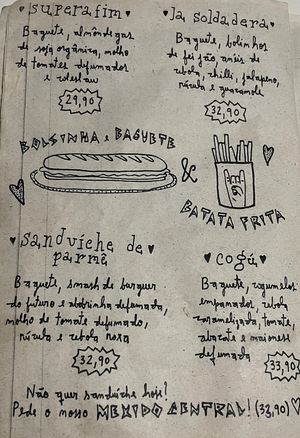 superafim
Baguete, almôndegas
de soja orgânica, molho
de tomates defumados
e coleslaw
29,90
la soldadera
Baguete, bolinhos
de feijão, anéis de
cebola, chilli, jalapeno,
rúcula e guacamole
32,90
BOLSINHA e BAGUETE
&
BATATA FRITA
sanduíche de
parmê
Baguete, smash de burguer
do futuro e abobrinha defumada,
molho de tomate defumado,
rúcula e cebola roxa
32,90
cogú
Baguete, cogumelos
empanados, cebola
caramelizada, tomate,
abacate e maionese
defumada
33,90
Não quer sanduíche hoje?
Pede o nosso MEXIDO CENTRAL! (33,90)